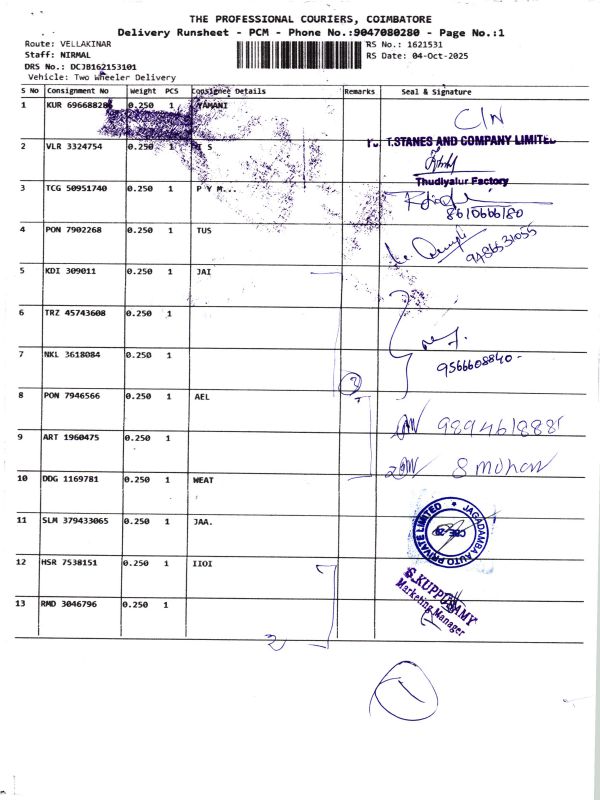 THE PROFESSIONAL COURIERS, COIMBATORE
Delivery Runsheet - PCM - Phone No.:9047080280 - Page No.:1
Route: VELLAKINAR RS No.: 1621531
Staff: NIRMAL RS Date: 04-Oct-2025
DRS No.: DCJB162153101
Vehicle: Two Wheeler Delivery
S No Consignment No Weight PCS Consignee Details Remarks Seal & Signature
1 KUR 0.250 1 YAMANI C/N
2 VLR 3324754 0.250 1 T.STANES AND COMPANY LIMITED
Thudiyalur Factory
3 TCG 50951740 0.250 1 P Y M...
8610666180
4 PON 7902268 0.250 1 TUS
9486631055
5 KDI 309011 0.250 1 JAI
6 TRZ 45743608 0.250 1
7 NKL 3618084 0.250 1
9566608840-
3
8 PON 7946566 0.250 1 AEL
9894618881
9 ART 1960475 0.250 1
S mohan
10 DDG 1169781 0.250 1 WEAT
11 SLM 379433065 0.250 1 JAA.
JAGADAMBA AUTO PRIVATE LIMITED
12 HSR 7538151 0.250 1 IIOI
S.KUPPUSAMY
Marketing Manager
13 RMD 3046796 0.250 1
2
1